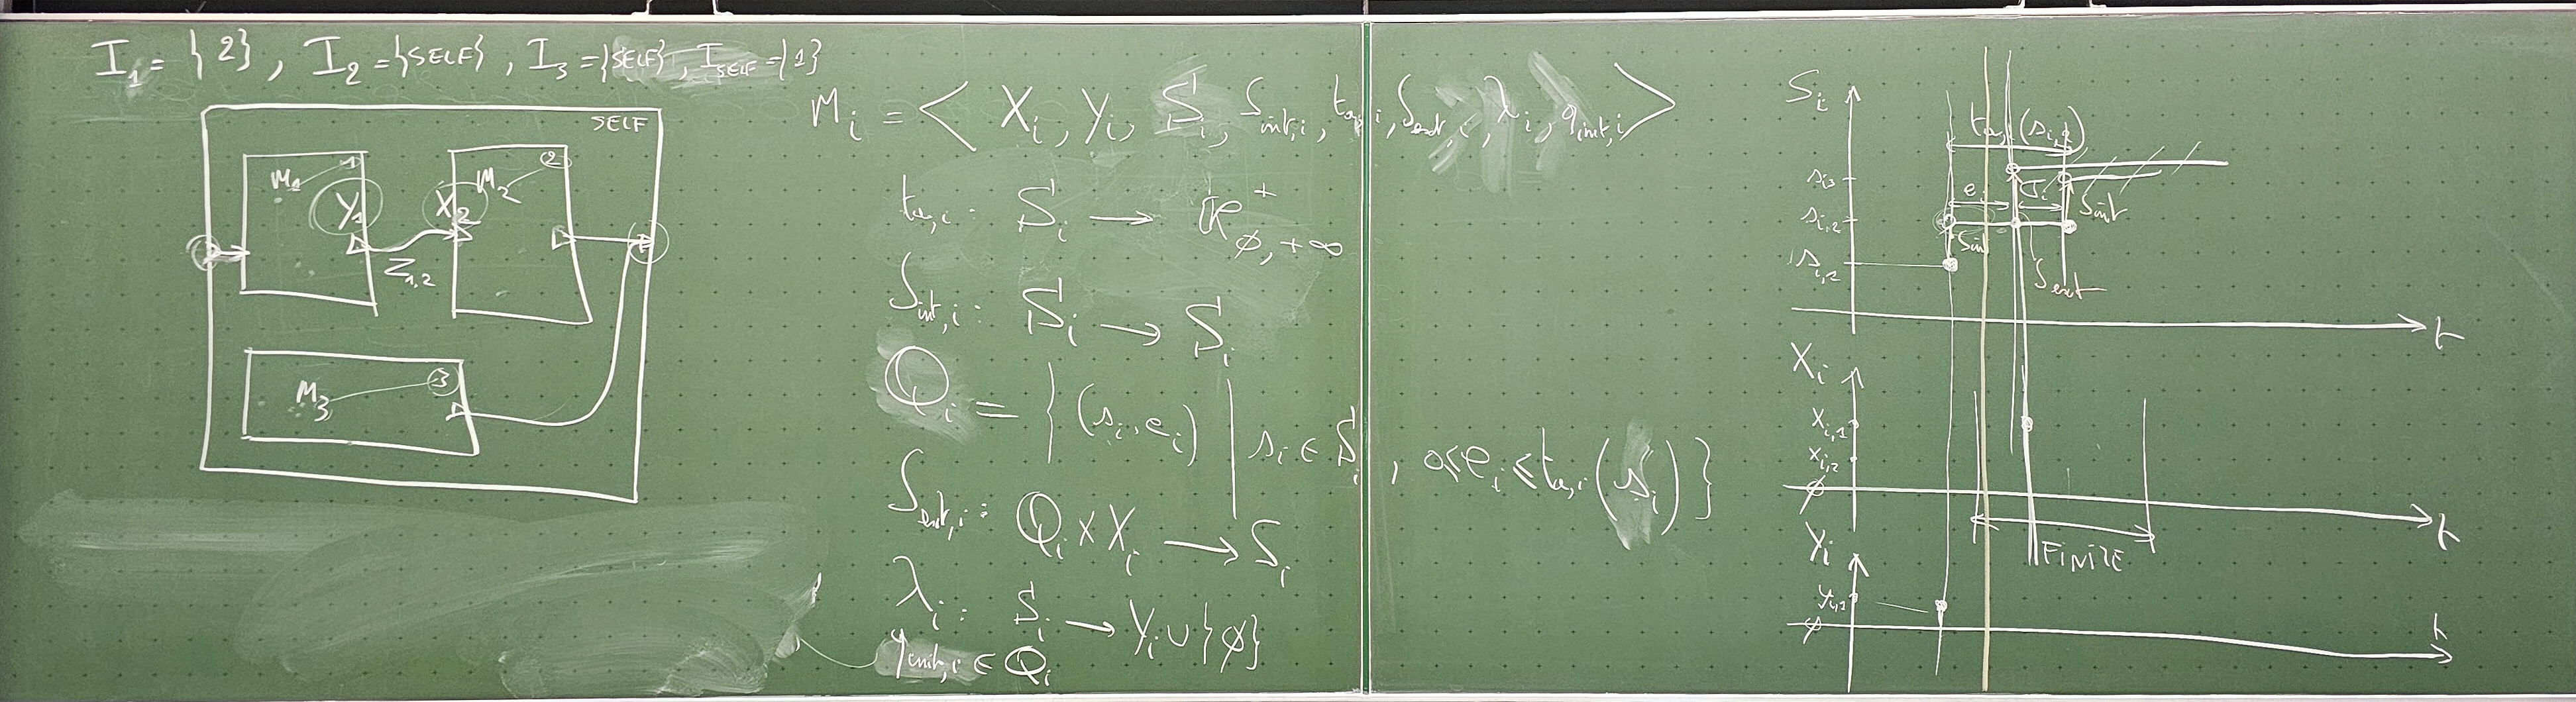 I₁ = {2}, I₂ = {SELF}, I₃ = {SELF}, I_SELF = {1}
SELF
M₁ 1
Y₁
X₂
M₂ 2
Z₁,₂
M₃ 3
Mᵢ = < Xᵢ, Yᵢ, Sᵢ, δint,i, ta,i, δext,i, λᵢ, qinit,i >
ta,i : Sᵢ → ℝ⁺ ∅,+∞
δint,i : Sᵢ → Sᵢ
Qᵢ = { (sᵢ, eᵢ) | sᵢ ∈ Sᵢ, 0 ≤ eᵢ ≤ ta,i (sᵢ) }
δext,i : Qᵢ × Xᵢ → Sᵢ
λᵢ : Sᵢ → Yᵢ ∪ {∅}
qinit,i ∈ Qᵢ
Sᵢ
ta,i (sᵢ,₂)
sᵢ,₃
eᵢ
σᵢ
δint
sᵢ,₂
δint
sᵢ,₂
δext
t
Xᵢ
xᵢ,₁
xᵢ,₂
∅
t
FINITE
Yᵢ
yᵢ,₁
∅
t